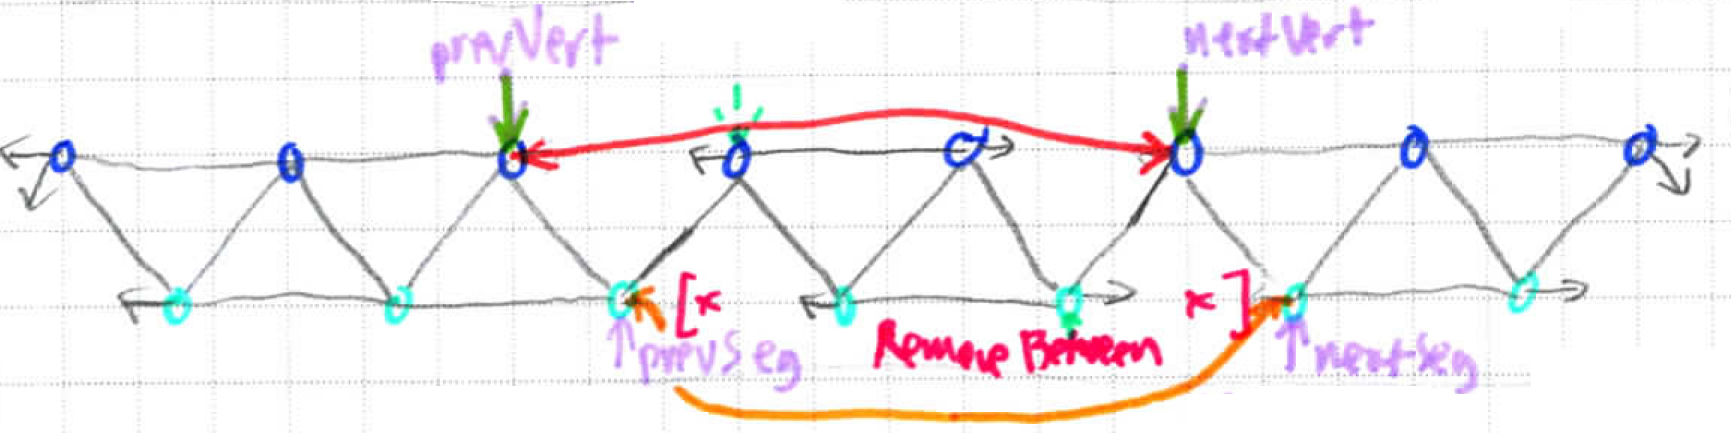 prevVert
nextVert
[x
x]
prevSeg
Remove Between
nextSeg